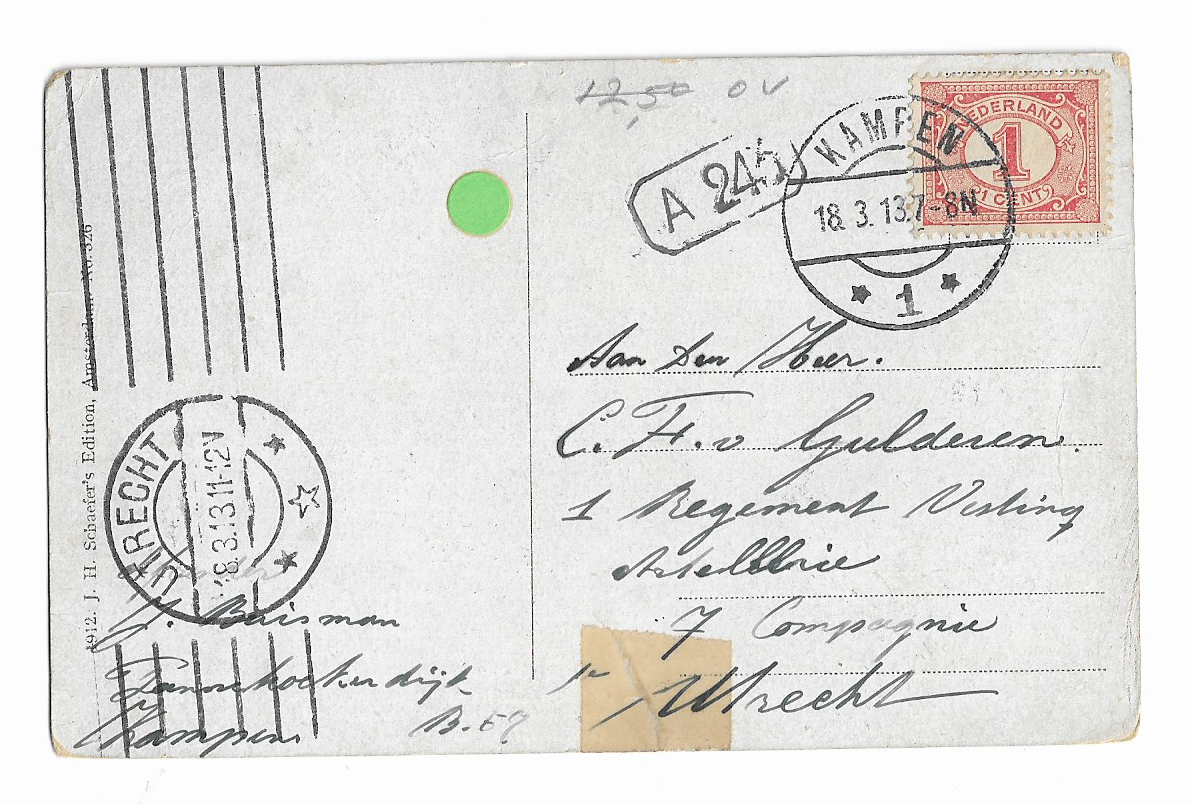 12,50 OV
A 245
KAMPEN
18.3.13 7-8N
1
NEDERLAND
1
1 CENT
Aan Den Heer.
C. F. v Gulderen.
1 Regement Vesting
Artelllrie
7 Compagnie
te Utrecht
UTRECHT
18.3.13 11-12V
Afzender
J. Buisman
dijk
Kampen B.57
1912. J. H. Schaefer's Edition, Amsterdam. No. 326